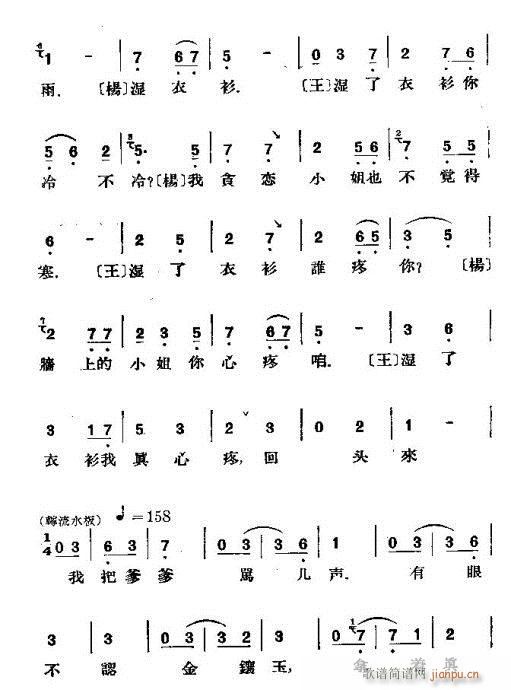 1 - | 7 6 7 | 5 - | 0 3 7 | 2 7 6
雨.〔楊〕湿衣衫.〔王〕湿了衣衫你
5 6 2 | 5. 7 | 7 7 | 2 5 6 | 7 5 5
冷不冷?〔楊〕我貪恋小姐也不覚得
6 - | 2 5 | 2 7 | 2 6 5 | 3 5
寒.〔王〕湿了衣衫誰疼你?〔楊〕
2 7 7 | 2 3 5 | 7 6 7 | 5 - | 3 6
牆上的小姐你心疼咱.〔王〕湿了
3 1 7 | 5 3 | 2 3 | 0 2 | 1 -
衣衫我眞心疼,回头來
(轉流水板) ♩=158
1/4 0 3 | 6 3 | 7 | 0 3 | 3 6 | 1 | 0 3 | 3 6
我把爹爹駡几声.有眼
3 | 3 | 2 | 2 | 0 7 | 7 2 | 0 3
不認金鑲玉,
歌谱简谱网 jianpu.cn